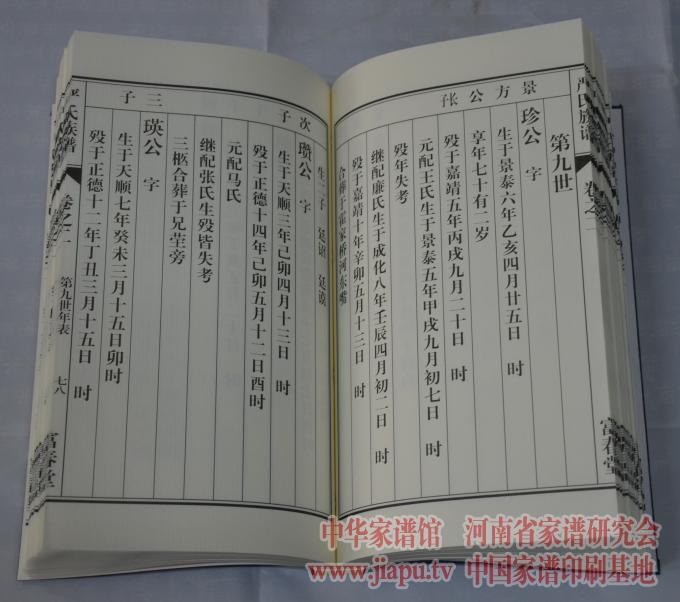 严氏族谱
卷之二
富春堂
第九世
景方公长子
珍公 字
生于景泰六年乙亥四月廿五日 时
享年七十有二岁
殁于嘉靖五年丙戌九月二十日 时
元配王氏生于景泰五年甲戌九月初七日 时
殁年失考
继配廉氏生于成化八年壬辰四月初二日 时
殁于嘉靖十年辛卯五月十三日 时
合葬于霍家桥河东嘴
生二子 廷诏 廷谟
次子
瓒公 字
生于天顺三年己卯四月十三日 时
殁于正德十四年己卯五月十二日酉时
元配马氏
继配张氏生殁皆失考
三柩合葬于兄茔旁
三子
瑛公 字
生于天顺七年癸未三月十五日卯时
殁于正德十二年丁丑三月十五日 时
氏族谱
卷之二
第九世年表
七八
富春堂
中华家谱馆 河南省家谱研究会
www.jiapu.tv 中国家谱印刷基地